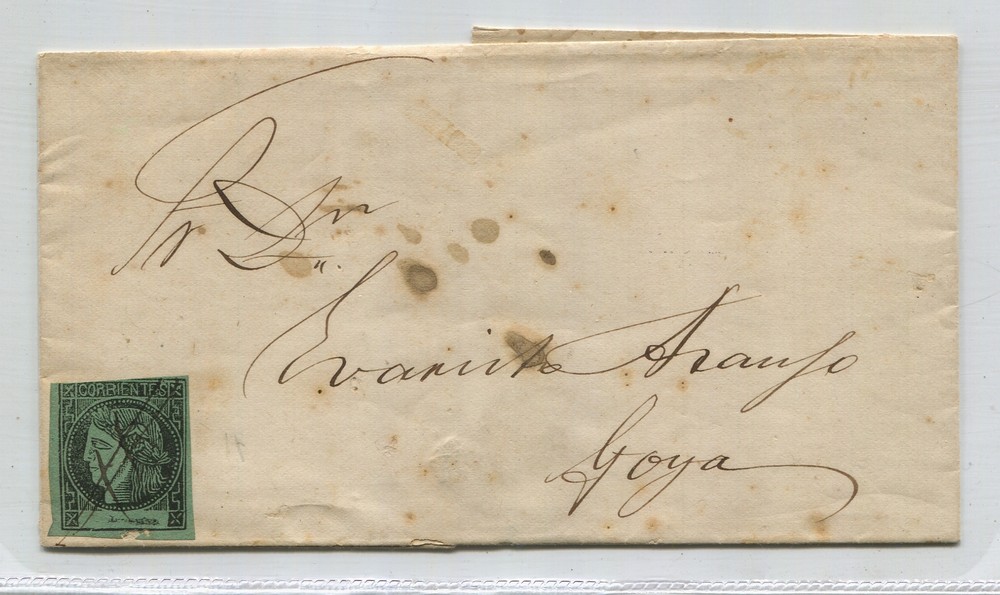 Sr Dn
Evaristo Araujo
Goya
CORRIENTES